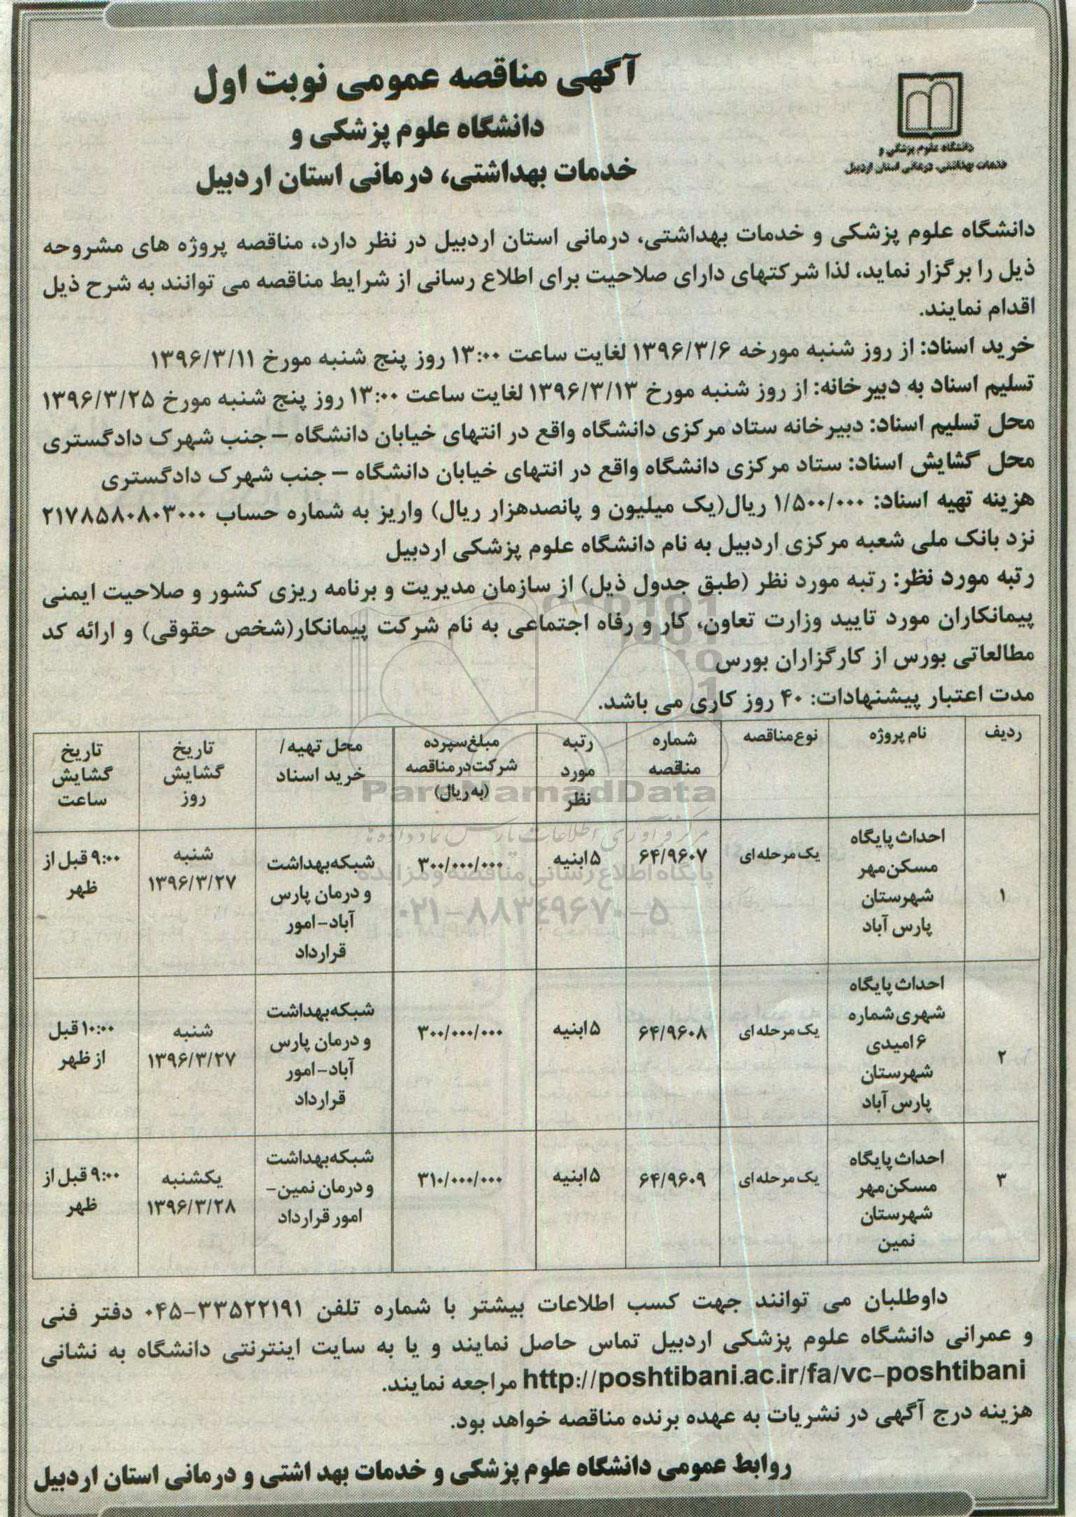 آگهی مناقصه عمومی نوبت اول
دانشگاه علوم پزشکی و
خدمات بهداشتی، درمانی استان اردبیل
دانشگاه علوم پزشکی و
خدمات بهداشتی، درمانی استان اردبیل
دانشگاه علوم پزشکی و خدمات بهداشتی، درمانی استان اردبیل در نظر دارد، مناقصه پروژه های مشروحه
ذیل را برگزار نماید، لذا شرکتهای دارای صلاحیت برای اطلاع رسانی از شرایط مناقصه می توانند به شرح ذیل
اقدام نمایند.
خرید اسناد: از روز شنبه مورخه ۱۳۹۶/۳/۶ لغایت ساعت ۱۳:۰۰ روز پنج شنبه مورخ ۱۳۹۶/۳/۱۱
تسلیم اسناد به دبیرخانه: از روز شنبه مورخ ۱۳۹۶/۳/۱۳ لغایت ساعت ۱۳:۰۰ روز پنج شنبه مورخ ۱۳۹۶/۳/۲۵
محل تسلیم اسناد: دبیرخانه ستاد مرکزی دانشگاه واقع در انتهای خیابان دانشگاه – جنب شهرک دادگستری
محل گشایش اسناد: ستاد مرکزی دانشگاه واقع در انتهای خیابان دانشگاه – جنب شهرک دادگستری
هزینه تهیه اسناد: ۱/۵۰۰/۰۰۰ ریال(یک میلیون و پانصدهزار ریال) واریز به شماره حساب ۲۱۷۸۵۸۰۸۰۳۰۰۰
نزد بانک ملی شعبه مرکزی اردبیل به نام دانشگاه علوم پزشکی اردبیل
رتبه مورد نظر: رتبه مورد نظر (طبق جدول ذیل) از سازمان مدیریت و برنامه ریزی کشور و صلاحیت ایمنی
پیمانکاران مورد تایید وزارت تعاون، کار و رفاه اجتماعی به نام شرکت پیمانکار(شخص حقوقی) و ارائه کد
مطالعاتی بورس از کارگزاران بورس
مدت اعتبار پیشنهادات: ۴۰ روز کاری می باشد.
ردیف نام پروژه نوع مناقصه شماره مناقصه رتبه مورد نظر مبلغ سپرده شرکت در مناقصه (به ریال) محل تهیه/ خرید اسناد تاریخ گشایش روز تاریخ گشایش ساعت
۱ احداث پایگاه مسکن مهر شهرستان پارس آباد یک مرحله ای ۶۴/۹۶۰۷ ۵ ابنیه ۳۰۰/۰۰۰/۰۰۰ شبکه بهداشت و درمان پارس آباد-امور قرارداد شنبه ۱۳۹۶/۳/۲۷ ۹:۰۰ قبل از ظهر
۲ احداث پایگاه شهری شماره ۶ امیدی شهرستان پارس آباد یک مرحله ای ۶۴/۹۶۰۸ ۵ ابنیه ۳۰۰/۰۰۰/۰۰۰ شبکه بهداشت و درمان پارس آباد-امور قرارداد شنبه ۱۳۹۶/۳/۲۷ ۱۰:۰۰ قبل از ظهر
۳ احداث پایگاه مسکن مهر شهرستان نمین یک مرحله ای ۶۴/۹۶۰۹ ۵ ابنیه ۳۱۰/۰۰۰/۰۰۰ شبکه بهداشت و درمان نمین- امور قرارداد یکشنبه ۱۳۹۶/۳/۲۸ ۹:۰۰ قبل از ظهر
ParsNamadData
مرکز فرآوری اطلاعات پارس نماد داده ها
پایگاه اطلاع رسانی مناقصه و مزایده
۰۲۱-۸۸۳۴۹۶۷۰-۵
داوطلبان می توانند جهت کسب اطلاعات بیشتر با شماره تلفن ۳۳۵۲۲۱۹۱-۰۴۵ دفتر فنی
و عمرانی دانشگاه علوم پزشکی اردبیل تماس حاصل نمایند و یا به سایت اینترنتی دانشگاه به نشانی
http://poshtibani.ac.ir/fa/vc-poshtibani مراجعه نمایند.
هزینه درج آگهی در نشریات به عهده برنده مناقصه خواهد بود.
روابط عمومی دانشگاه علوم پزشکی و خدمات بهد اشتی و درمانی استان اردبیل